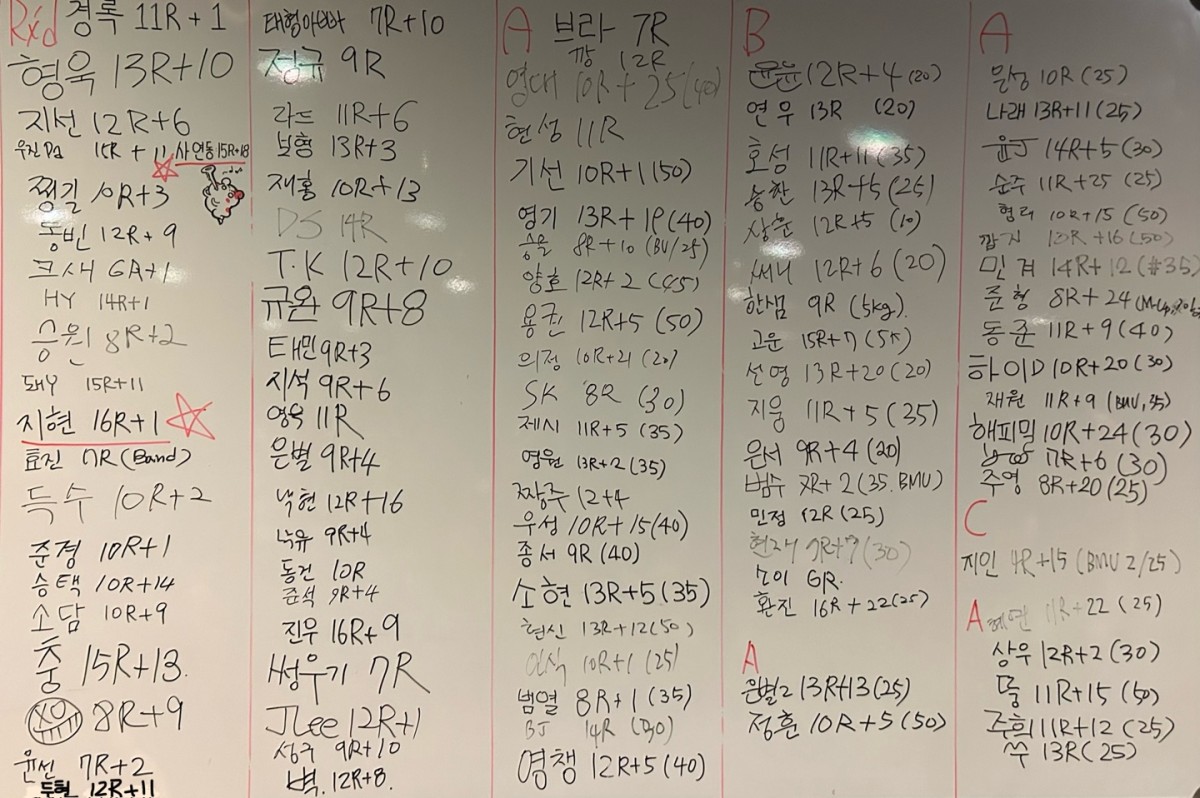 Rx'd 경록 11R + 1
형욱 13R+10
지선 12R+6
우진Pa 15R + 11
사연동 15R+18
찡길 10R+3
동빈 12R+9
크새 6R+1
HY 14R+1
승원 8R+2
돼이 15R+11
지현 16R+1
효진 7R (Band)
득수 10R+2
준경 10R+1
승택 10R+14
소담 10R+9
충 15R+13.
XO 8R+9
윤선 7R+2
두현 12R+11
태형아빠 7R+10
정규 9R
라드 11R+6
보형 13R+3
재홍 10R+13
DS 14R
T.K 12R+10
규완 9R+8
태민 9R+3
지석 9R+6
영욱 11R
은별 9R+4
낙현 12R+16
낙유 9R+4
동건 10R
준석 9R+4
진우 16R+9
써우기 7R
JLee 12R+1
성구 9R+10
벽. 12R+8.
A 브라 7R
깡 12R
영대 10R + 25(40)
현성 11R
기선 10R+1(50)
영기 13R+19(40)
승을 8R+10 (BU/25)
양호 12R+2 (45)
용권 12R+5 (50)
의정 10R+21 (20)
SK 8R (30)
제시 11R+5 (35)
영원 13R+2(35)
짱주 12+4
우성 10R+15(40)
종서 9R (40)
소현 13R+5(35)
형신 13R+12(50)
인식 10R+1 (25)
범열 8R+1(35)
BJ 14R (30)
영챙 12R+5 (40)
B
윤윤 12R+4 (20)
연우 13R (20)
호성 11R+11(35)
승찬 13R+5(25)
상훈 12R+5 (10)
써니 12R+6 (20)
한샘 9R (5kg).
고운 15R+7(55)
선영 13R+20(20)
지웅 11R+5(35)
은서 9R+4(20)
범수 7R+2(35.BMU)
민정 12R(25)
현재 9R+7 (30)
노이 6R.
환진 16R+22(25)
A
은별2 13R+13(25)
정훈 10R+5(50)
A
문성 10R (25)
나래 13R+11(25)
윤J 14R+5(30)
순주 11R+25 (25)
형러 10R+15 (50)
깜지 13R+16(50)
민겨 14R+12(#35)
준형 8R+24
동준 11R+9(40)
하이D 10R+20(30)
재원 11R+9 (BMU,35)
해피밀 10R+24(30)
7R+6 (30)
주영 8R+20(25)
C
지인 4R+15 (BMU 2/25)
A 혜연 11R+22 (25)
상우 12R+2 (30)
뚱 11R+15 (50)
주희 11R+12 (25)
쑤 13R(25)